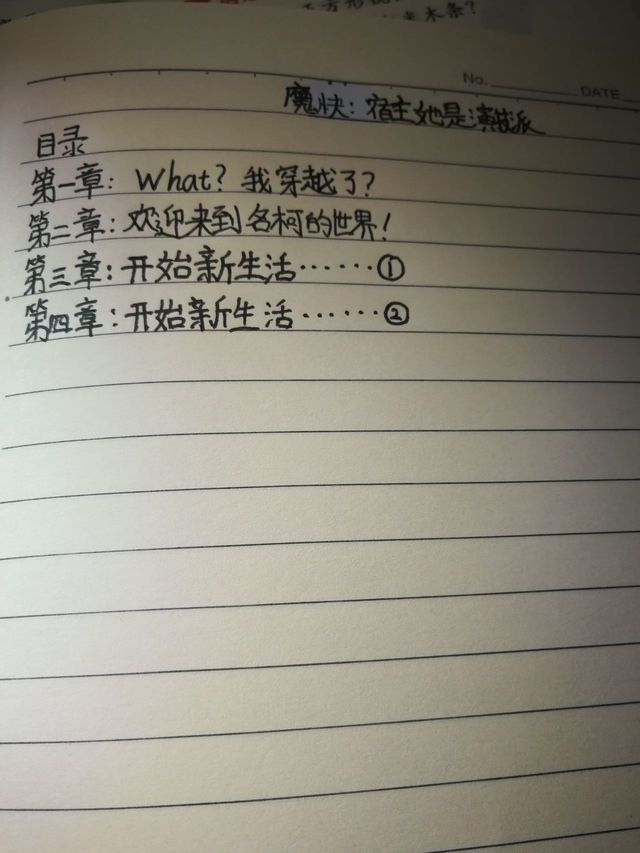 方形
木条?
No. DATE
魔快: 宿主她是演技派
目录
第一章: What? 我穿越了?
第二章: 欢迎来到名柯的世界!
第三章: 开始新生活……①
第四章: 开始新生活……②